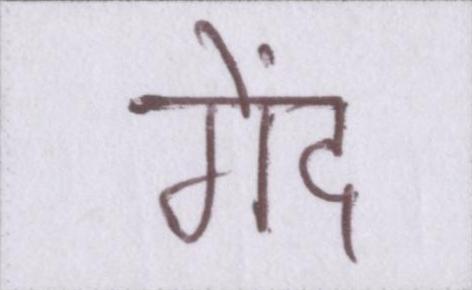 गेंद